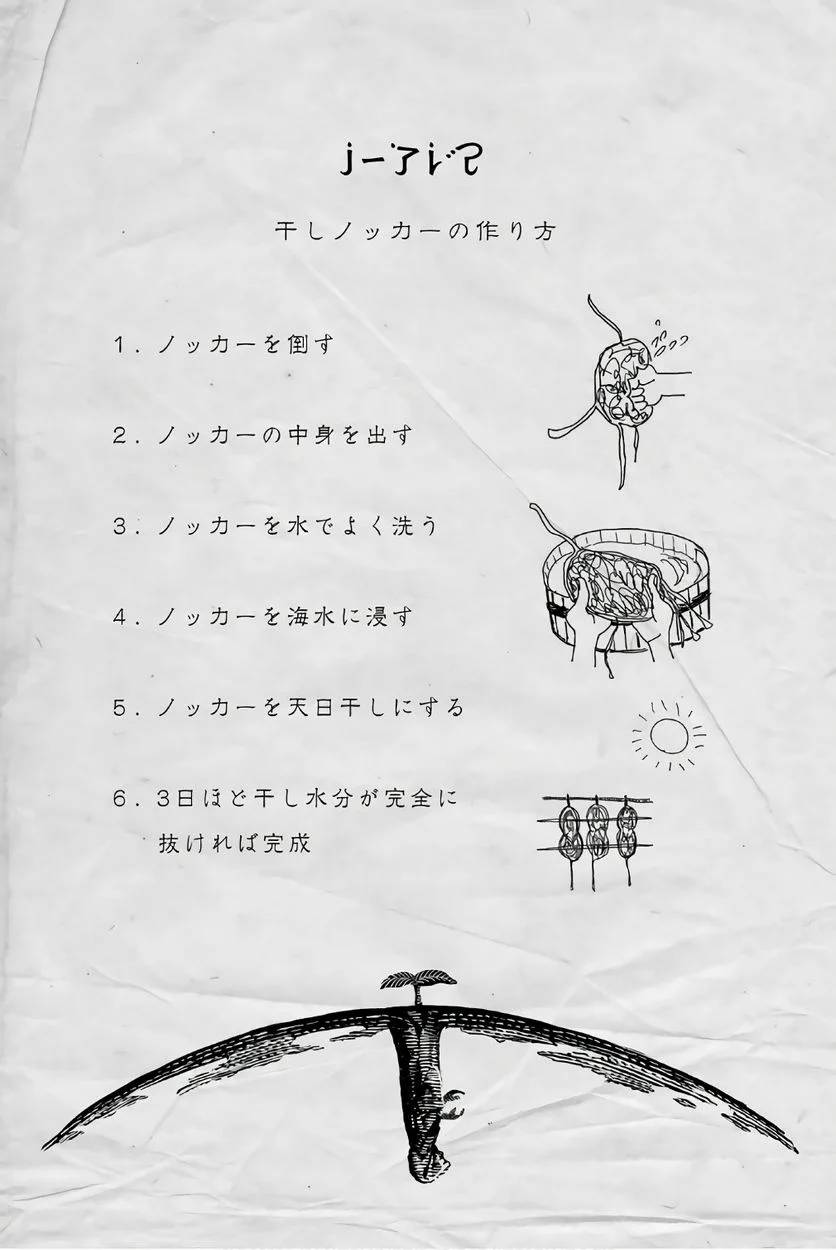 干しノッカーの作り方
1. ノッカーを倒す
2. ノッカーの中身を出す
3. ノッカーを水でよく洗う
4. ノッカーを海水に浸す
5. ノッカーを天日干しにする
6. 3日ほど干し水分が完全に
抜ければ完成